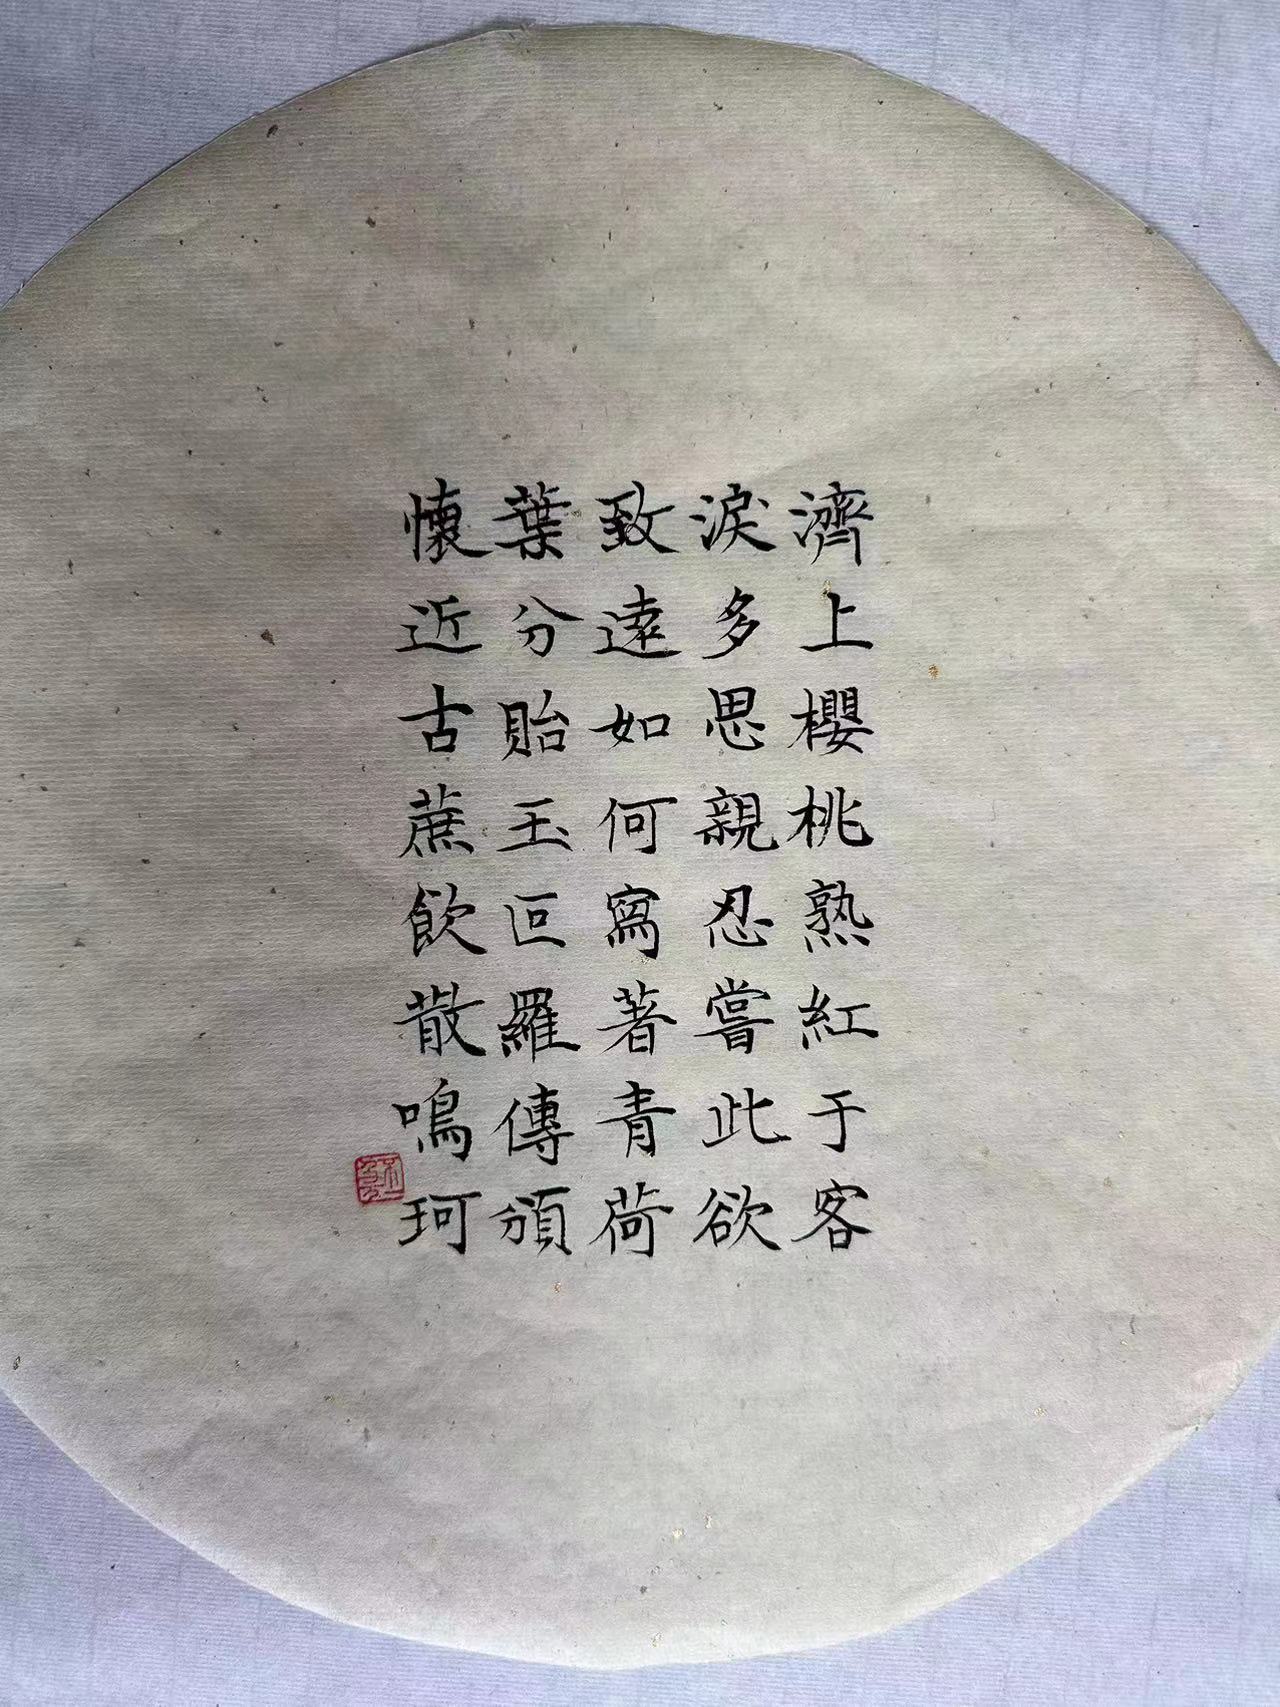 濟上櫻桃熟紅于客
淚多思親忍嘗此欲
致遠如何寫著青荷
葉分貽玉叵羅傳頒
懷近古蔗飲散鳴珂